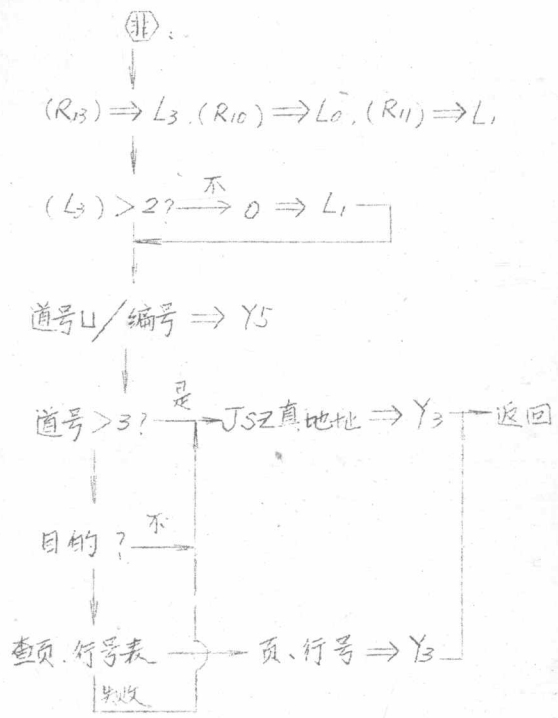 非
(R13) ⇒ L3. (R10) ⇒ L0, (R11) ⇒ L1
(L3) > 2? 不 0 ⇒ L1
道号⊔/编号 ⇒ Y5
道号>3? 是 JSZ真地址 ⇒ Y3 返回
目的? 不
查页、行号表 页、行号 ⇒ Y3
失败